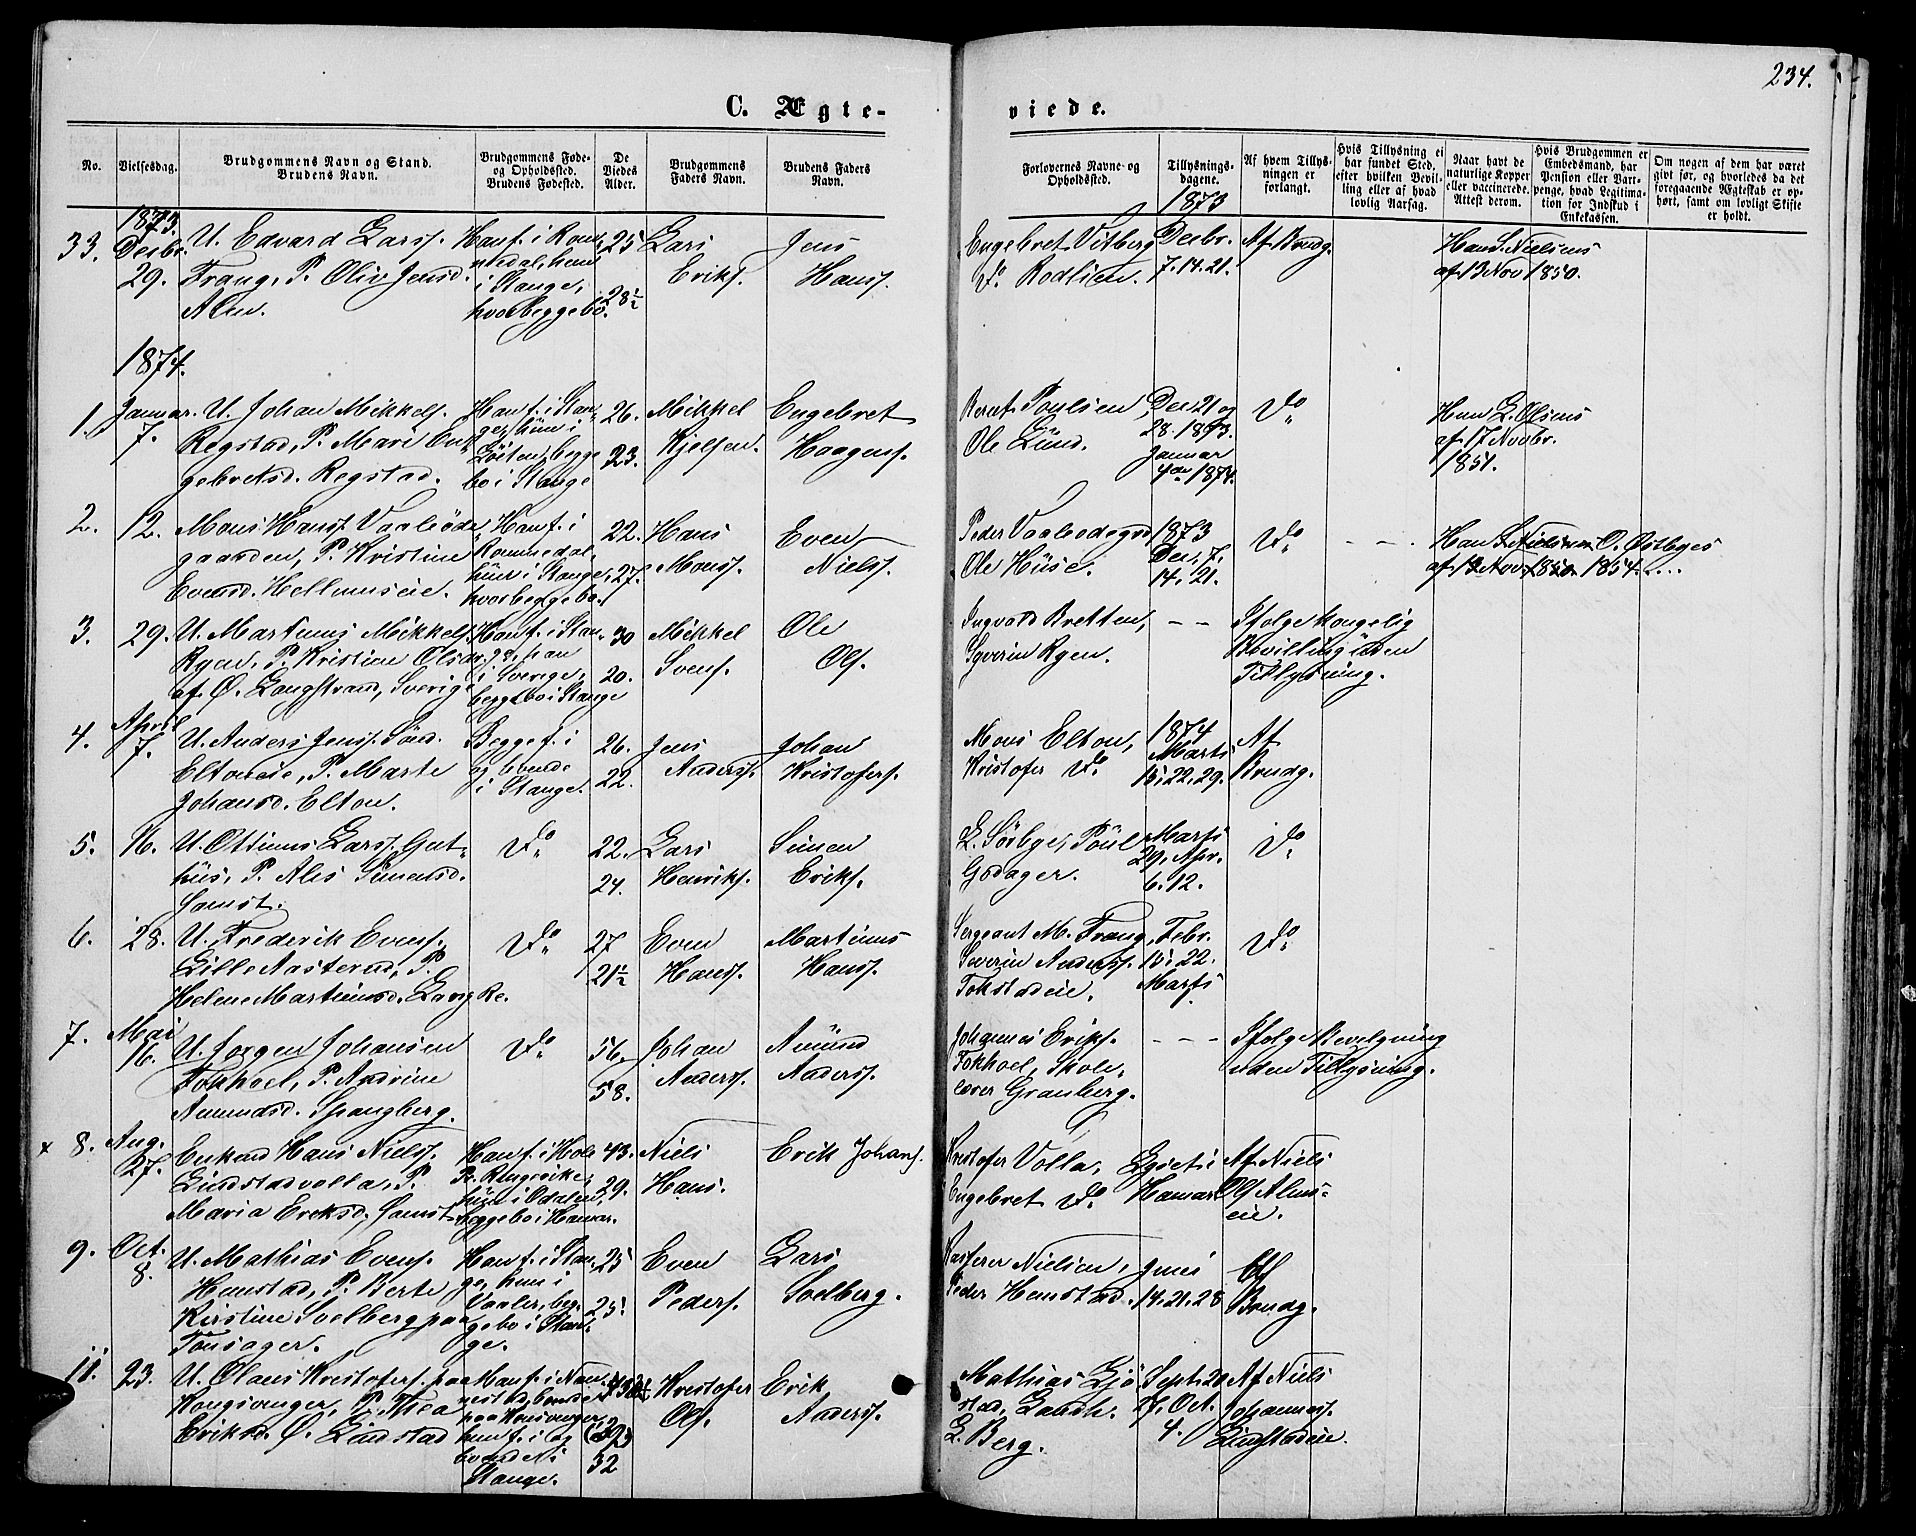 234.
C. Ægte-
viede.
No.
Vielsesdag.
Brudgommens Navn og Stand.
Brudens Navn.
Brudgommens Føde-
og Opholdssted.
Brudens Fødested.
De
Viedes
Alder.
Brudgommens
Faders Navn.
Brudens Faders
Navn.
Forlovernes Navne og
Opholdssted.
Tillysnings-
dagene.
1873
Af hvem Tillys-
ningen er
forlangt.
Hvis Tillysning ei
har fundet Sted,
efter hvilken Bevil-
ling eller af hvad
lovlig Aarsag.
Naar havt de
naturlige Kopper
eller vaccinerede.
Attest derom.
Hvis Brudgommen er
Embedsmand, har
Pension eller Vart-
penge, hvad Legitima-
tion for Indskud i
Enkekassen.
Om nogen af dem har været
givt før, og hvorledes da det
foregaaende Ægteskab er op-
hørt, samt om lovligt Skifte
er holdt.
1873.
33.
Decbr.
29.
U. Edvard Larss.
Frang, P. Oliv Jensd.
Alm.
Han f. i Rom-
medal, hun
i Stange,
hvor begge bo.
25
28½
Lars
Eriks.
Jens
Hanss.
Engebret Vitberg
do Rodlien.
Decbr.
7. 14. 21.
Af Brudg.
Han S. Nielsens
af 13 Nov 1850.
1874.
1.
Januar.
7.
U. Johan Mikkels.
Regstad, P. Mari En-
gebretsd. Regstad.
Han f. i Stan-
ge, hun i
Löiten, begge
bo i Stange
26.
23.
Mikkel
Kjelsen.
Engebret
Haagens.
Bernt Poulsen,
Ole Lund.
Dec. 21 og
28. 1873.
Januar
4de 1874.
do
Han L. Olsens
af 17 Novbr.
1851.
2.
12.
Mons Hanss. Vaaleöde-
gaarden, P. Kristine
Evensd. Hellemseie.
Han f. i
Rommedal,
hun i Stange,
hvor begge bo.
22.
27.
Hans
Monss.
Even
Nielss.
Peder Vaaleödegrd
Ole Huse.
1873
Dec. 7.
14. 21.
do
- - -
Han S. Nielsens O. Östbyes
af 13 Nov 1850. 1854. ...
3.
29.
U. Martinus Mikkels.
Ryen, P. Kristine Olsd.
af Ö. Langstrand, Sverige
Han f. i Stan-
ge, hun
i Sverige,
begge bo i Stange
30
20.
Mikkel
Svens.
Ole
Ols.
Ingvald Bretten,
Syverin Ryen.
- -
Ifölge kongelig
Bevilling uden
Tillysning.
4.
April
7.
U. Anders Jenss. Sönd.
Eltoneie, P. Marte
Johansd. Elton.
Begge f. i
og boende
i Stange.
26.
22.
Jens
Anderss.
Johan
Kristofers.
Mons Elton,
Kristofer do
1874
Marts
15. 22. 29.
Af
Brudg.
5.
16.
U. Ottinus Larss. Gut-
hus, P. Alis Simensd.
Samst.
do
22.
24.
Lars
Henriks.
Simen
Eriks.
L. Sörbye, Poul
Godager.
Marts
29. Apr.
6. 12.
do
6.
28.
U. Frederik Evens.
Lille Aasterud, P.
Helene Martinusd. Lang Re.
do
27
21½
Even
Hanss.
Martinus
Hanss.
Sergeant M. Frang,
Severin Anderss.
Tokstadeie.
Febr.
15. 22.
Marts
do
7.
Mai
16.
U. Jorgen Johansen
Tokhoel, P. Andrine
Amundsd. Spangberg.
do
56.
58.
Johan
Anderss.
Amund
Anderss.
Johannes Eriks.
Tokhoel, Skole-
lærer Granberg.
- - -
Ifölge Bevilgning
uden Tillysning.
x 8.
Aug.
27.
Enkem. Hans Nielss.
Lindstadvolla, P.
Maria Eriksd. Samst.
Han f. i Hole
Pr. Ringerike,
hun i Odalen,
begge bo i Hamar.
43.
29.
Niels
Hans.
Erik Johans.
Kristofer Volla,
Engebret do
Lyset i
Hamar.
Af Niels
Ols Alms-
eie.
9.
Oct.
8.
U. Mathias Evens.
Hemstad, P. Berte
Kirstine Soelberg paa
Tönsager.
Han f. i Stan-
ge, hun i
Vaaler, beg-
ge bo i Stan-
ge.
25
25.
Even
Peders.
Lars
Soelberg.
Kasserer Nielsen,
Peder Hemstad.
Juni
14. 21. 28
Af
Brudg.
11.
23.
U. Olaus Kristofers. paa
Kongsvinger, P. Thea
Eriksd. Ö. Lindstad
Han f. i Nan-
nestad, boende
paa Konsvinger,
hun f. i og
boende i
Stange.
32
Kristofer
Ols.
Erik
Anderss.
Mathias Gjö-
stad, Landh.
L. Berg.
Sept. 20
27. Oct.
4.
Af Niels
Johanness.
Lindstadeie.